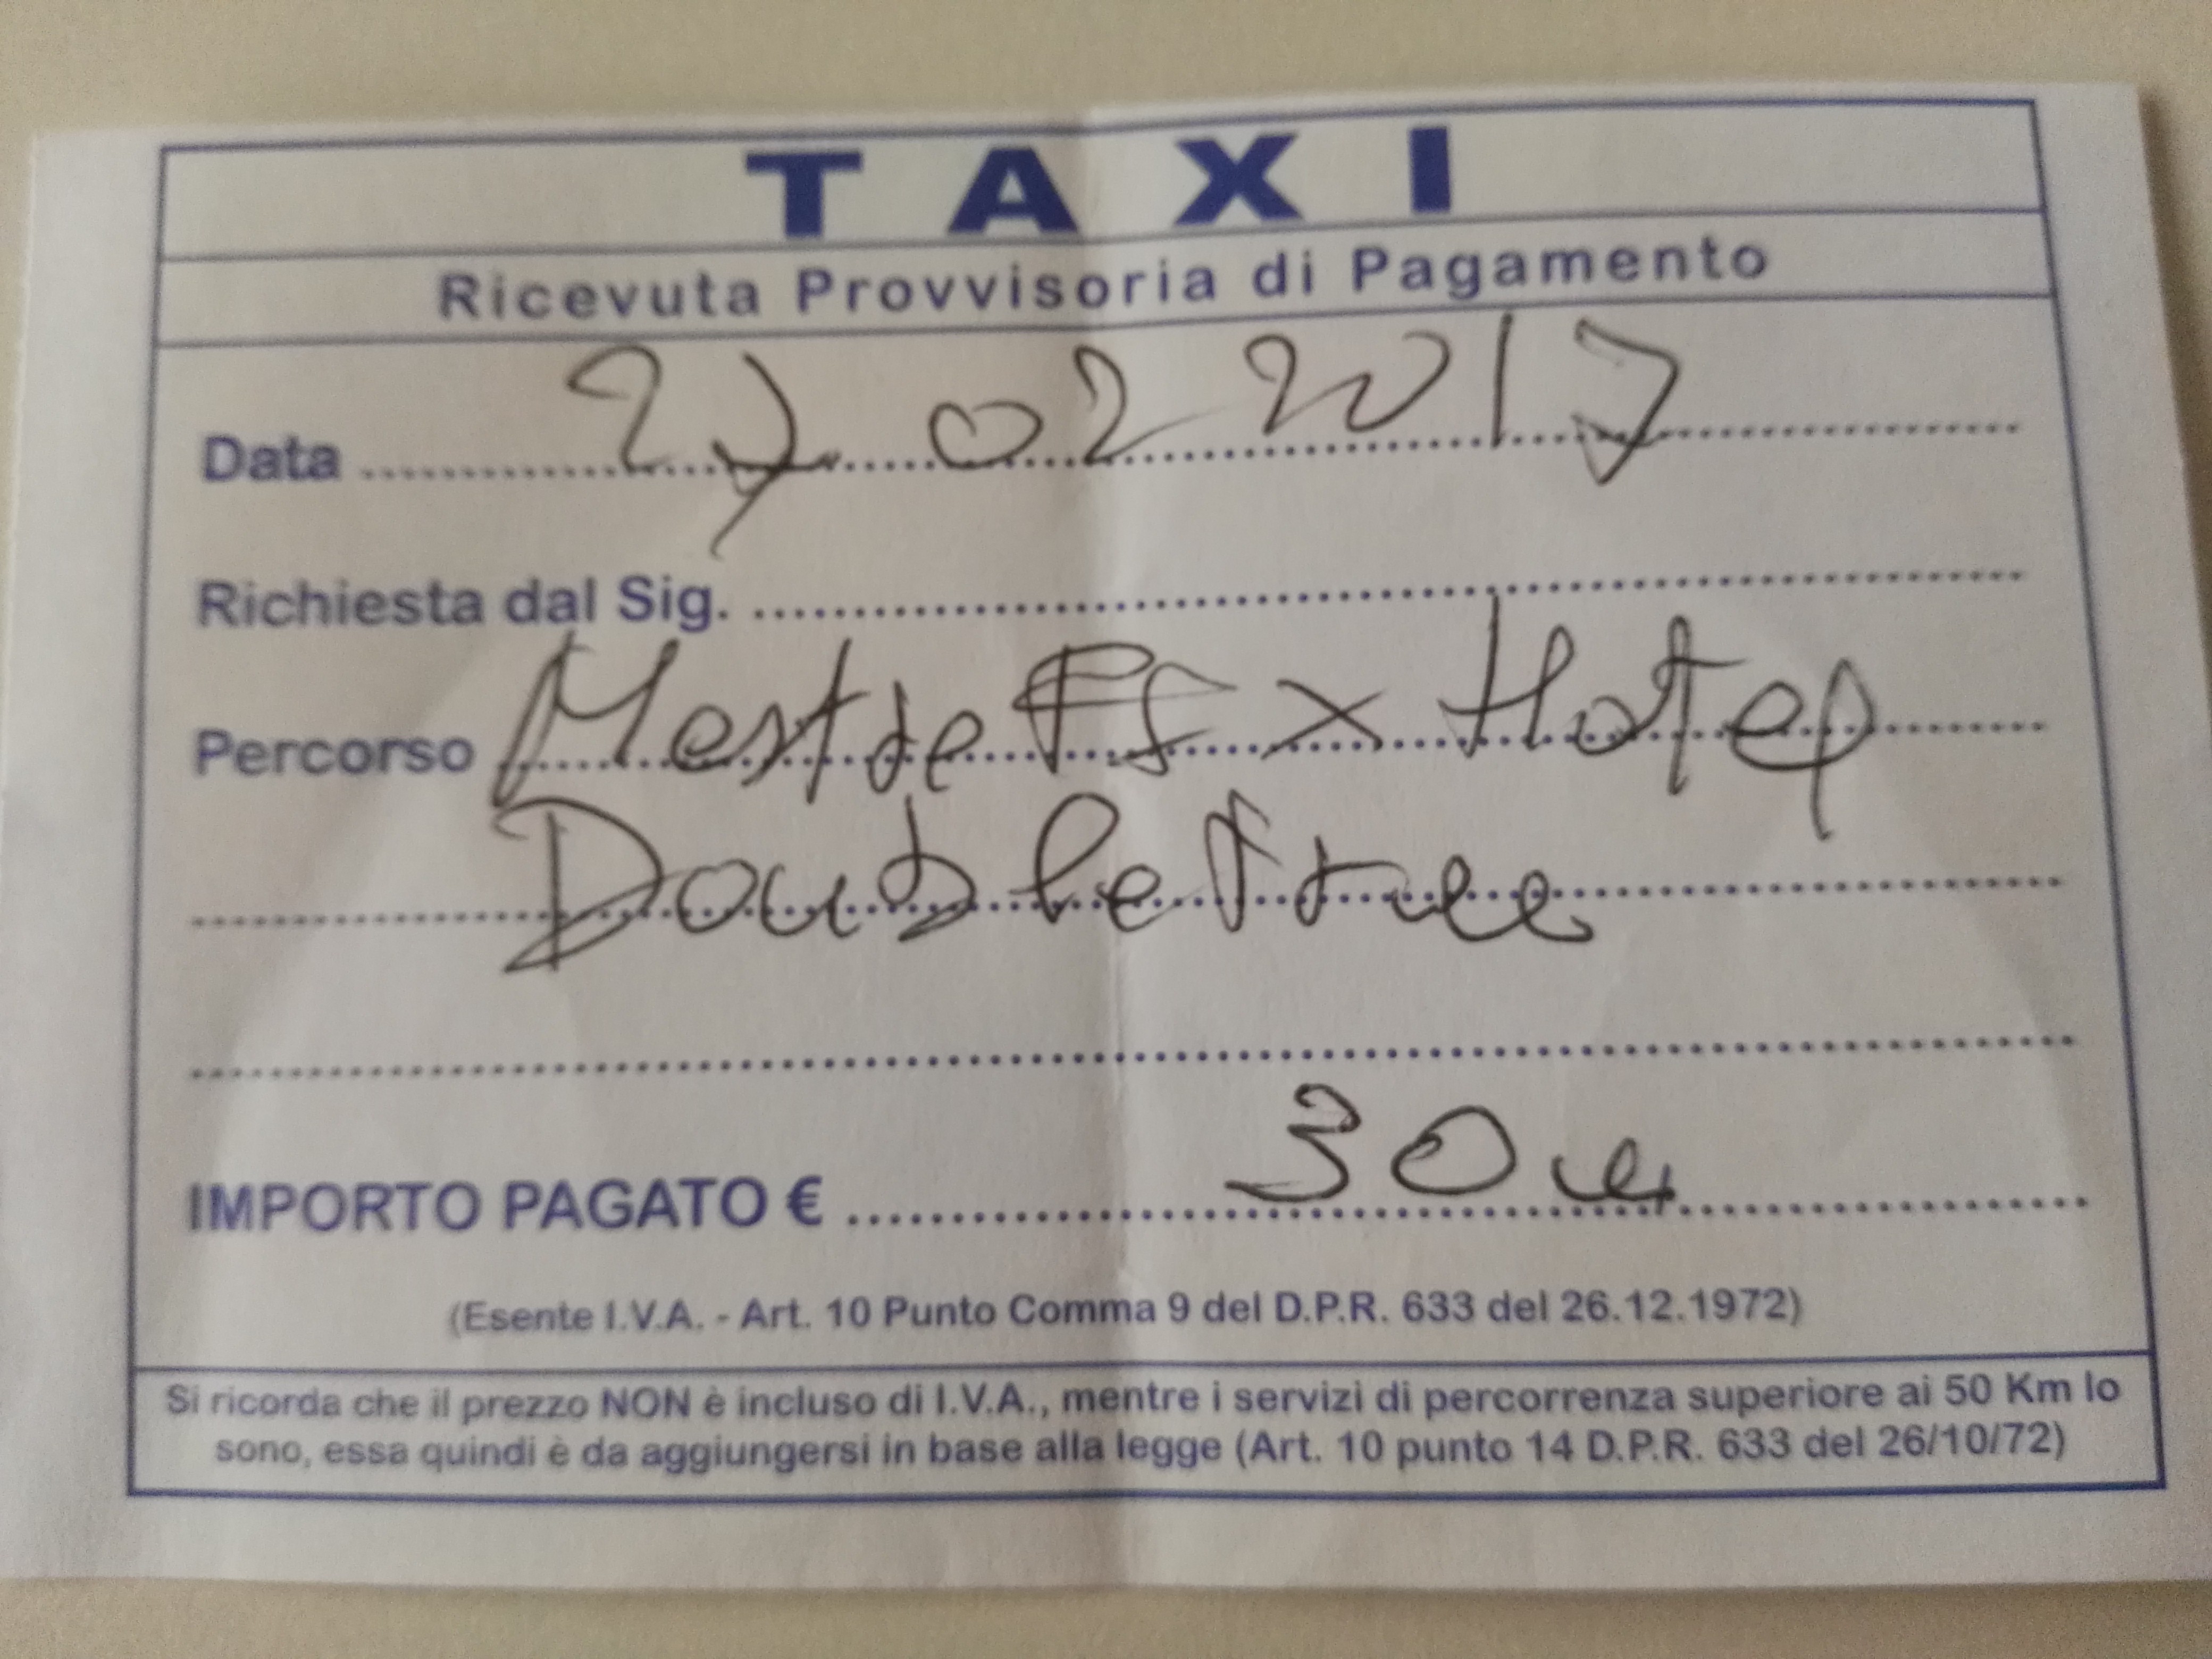 TAXI
Ricevuta Provvisoria di Pagamento
Data 27 02 2017
Richiesta dal Sig.
Percorso Mestre FS x Hotel
Doubletree
IMPORTO PAGATO € 30
(Esente I.V.A. - Art. 10 Punto Comma 9 del D.P.R. 633 del 26.12.1972)
Si ricorda che il prezzo NON è incluso di I.V.A., mentre i servizi di percorrenza superiore ai 50 Km lo
sono, essa quindi è da aggiungersi in base alla legge (Art. 10 punto 14 D.P.R. 633 del 26/10/72)